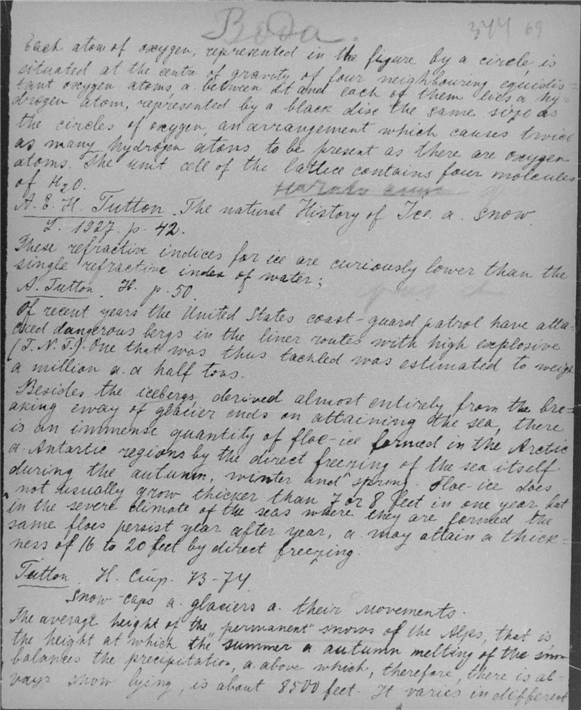 Вода.
344 69
Each atom of oxygen, represented in the figure by a circle is
situated at the centre of gravity of four neighbouring equidis-
tant oxygen atoms, a. between it and each of them lies a hy-
drogen atom, represented by a black disc the same size as
the circles of oxygen, an arrangement which causes twice
as many hydrogen atoms to be present as there are oxygen
atoms. The unit cell of the lattice contains four molecules
of H₂O.
A. E. H. Tutton. The natural History of Ice a. Snow.
L. 1927 p. 42.
These refractive indices for ice are curiously lower than the
single refractive index of water;
A. Tutton. H. p. 50.
Of recent years the United States coast-guard patrol have atta-
cked dangerous bergs in the liner routes with high explosive
(T.N.T.). One that was thus tackled was estimated to weigh
a million a. a half tons.
Besides the icebergs, derived almost entirely from the bre-
aking away of glacier ends on attaining the sea, there
is an immense quantity of floe-ice formed in the Arctic
a. Antartic regions by the direct freezing of the sea itself
during the autumn, winter and spring. Floe-ice does
not usually grow thicker than 7 or 8 feet in one year, but
in the severe climate of the seas where they are formed the
same floes persist year after year, a. may attain a thick-
ness of 16 to 20 feet by direct freezing.
Tutton. H. Стр. 73-74.
Snow-caps a. glaciers a. their movements.
The average height of the "permanent" snows of the Alps, that is
the height at which the summer a autumn melting of the snow
balances the precipitation, a. above which, therefore, there is al-
ways snow lying, is about 8500 feet. It varies in different